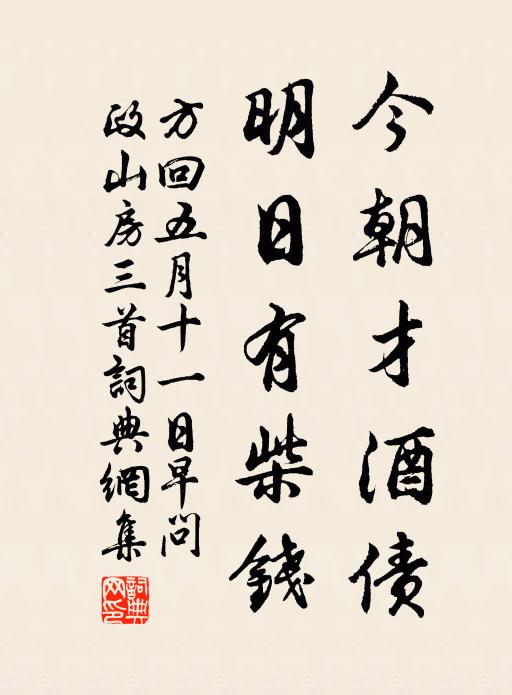 今朝才酒债
明日有柴錢
方回五月十一日早問
政山房三首詞典網集
詞典網印